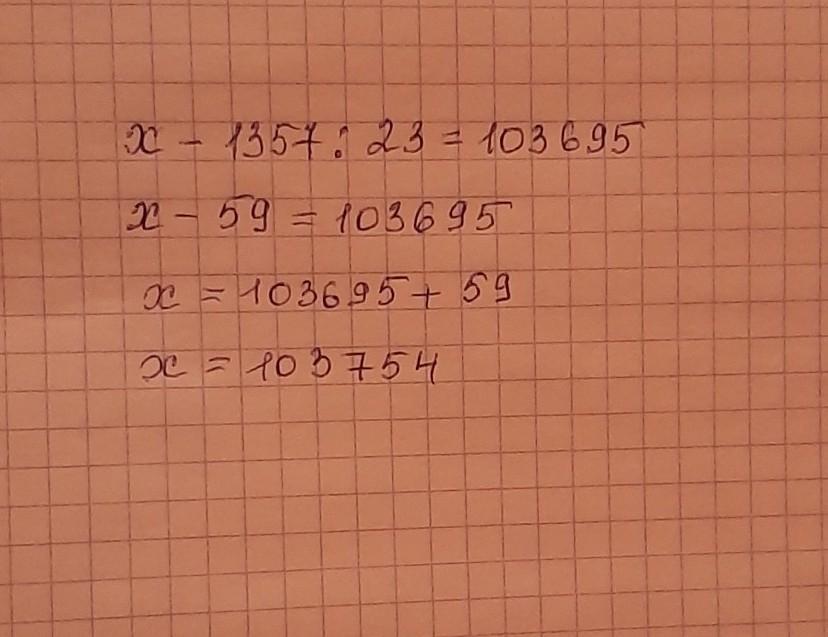 x - 1357 : 23 = 103695
x - 59 = 103695
x = 103695 + 59
x = 103754